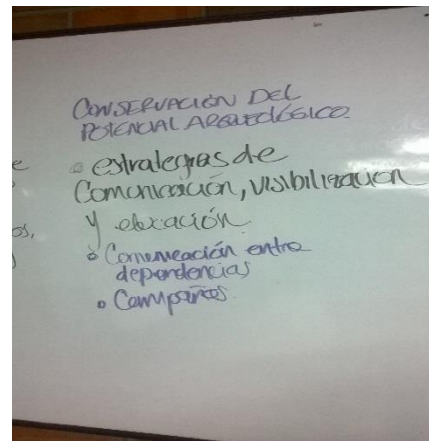 CONSERVACIÓN DEL
POTENCIAL ARQUEOLÓGICO
• estrategias de
Comunicación, visibilización
y educación
• Comunicación entre
dependencias
• Campañas
e
os,